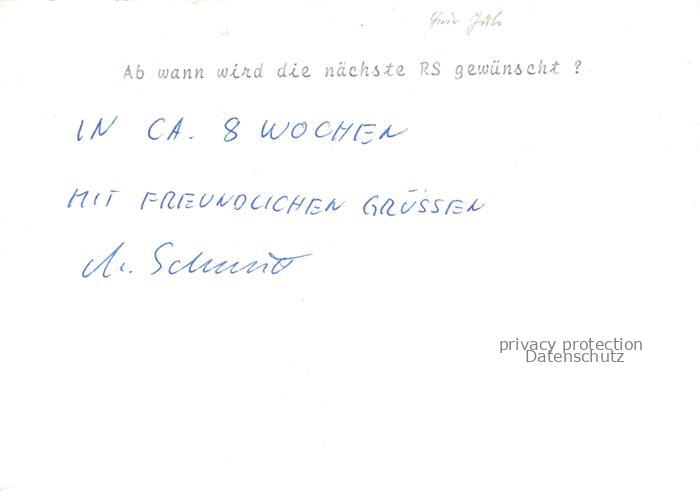 Ab wann wird die nächste RS gewünscht ?
IN CA. 8 WOCHEN
MIT FREUNDLICHEN GRÜSSEN
Schmitt
privacy protection
Datenschutz